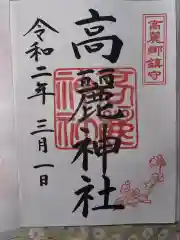 高麗郷鎮守
高麗神社
令和二年 三月一日